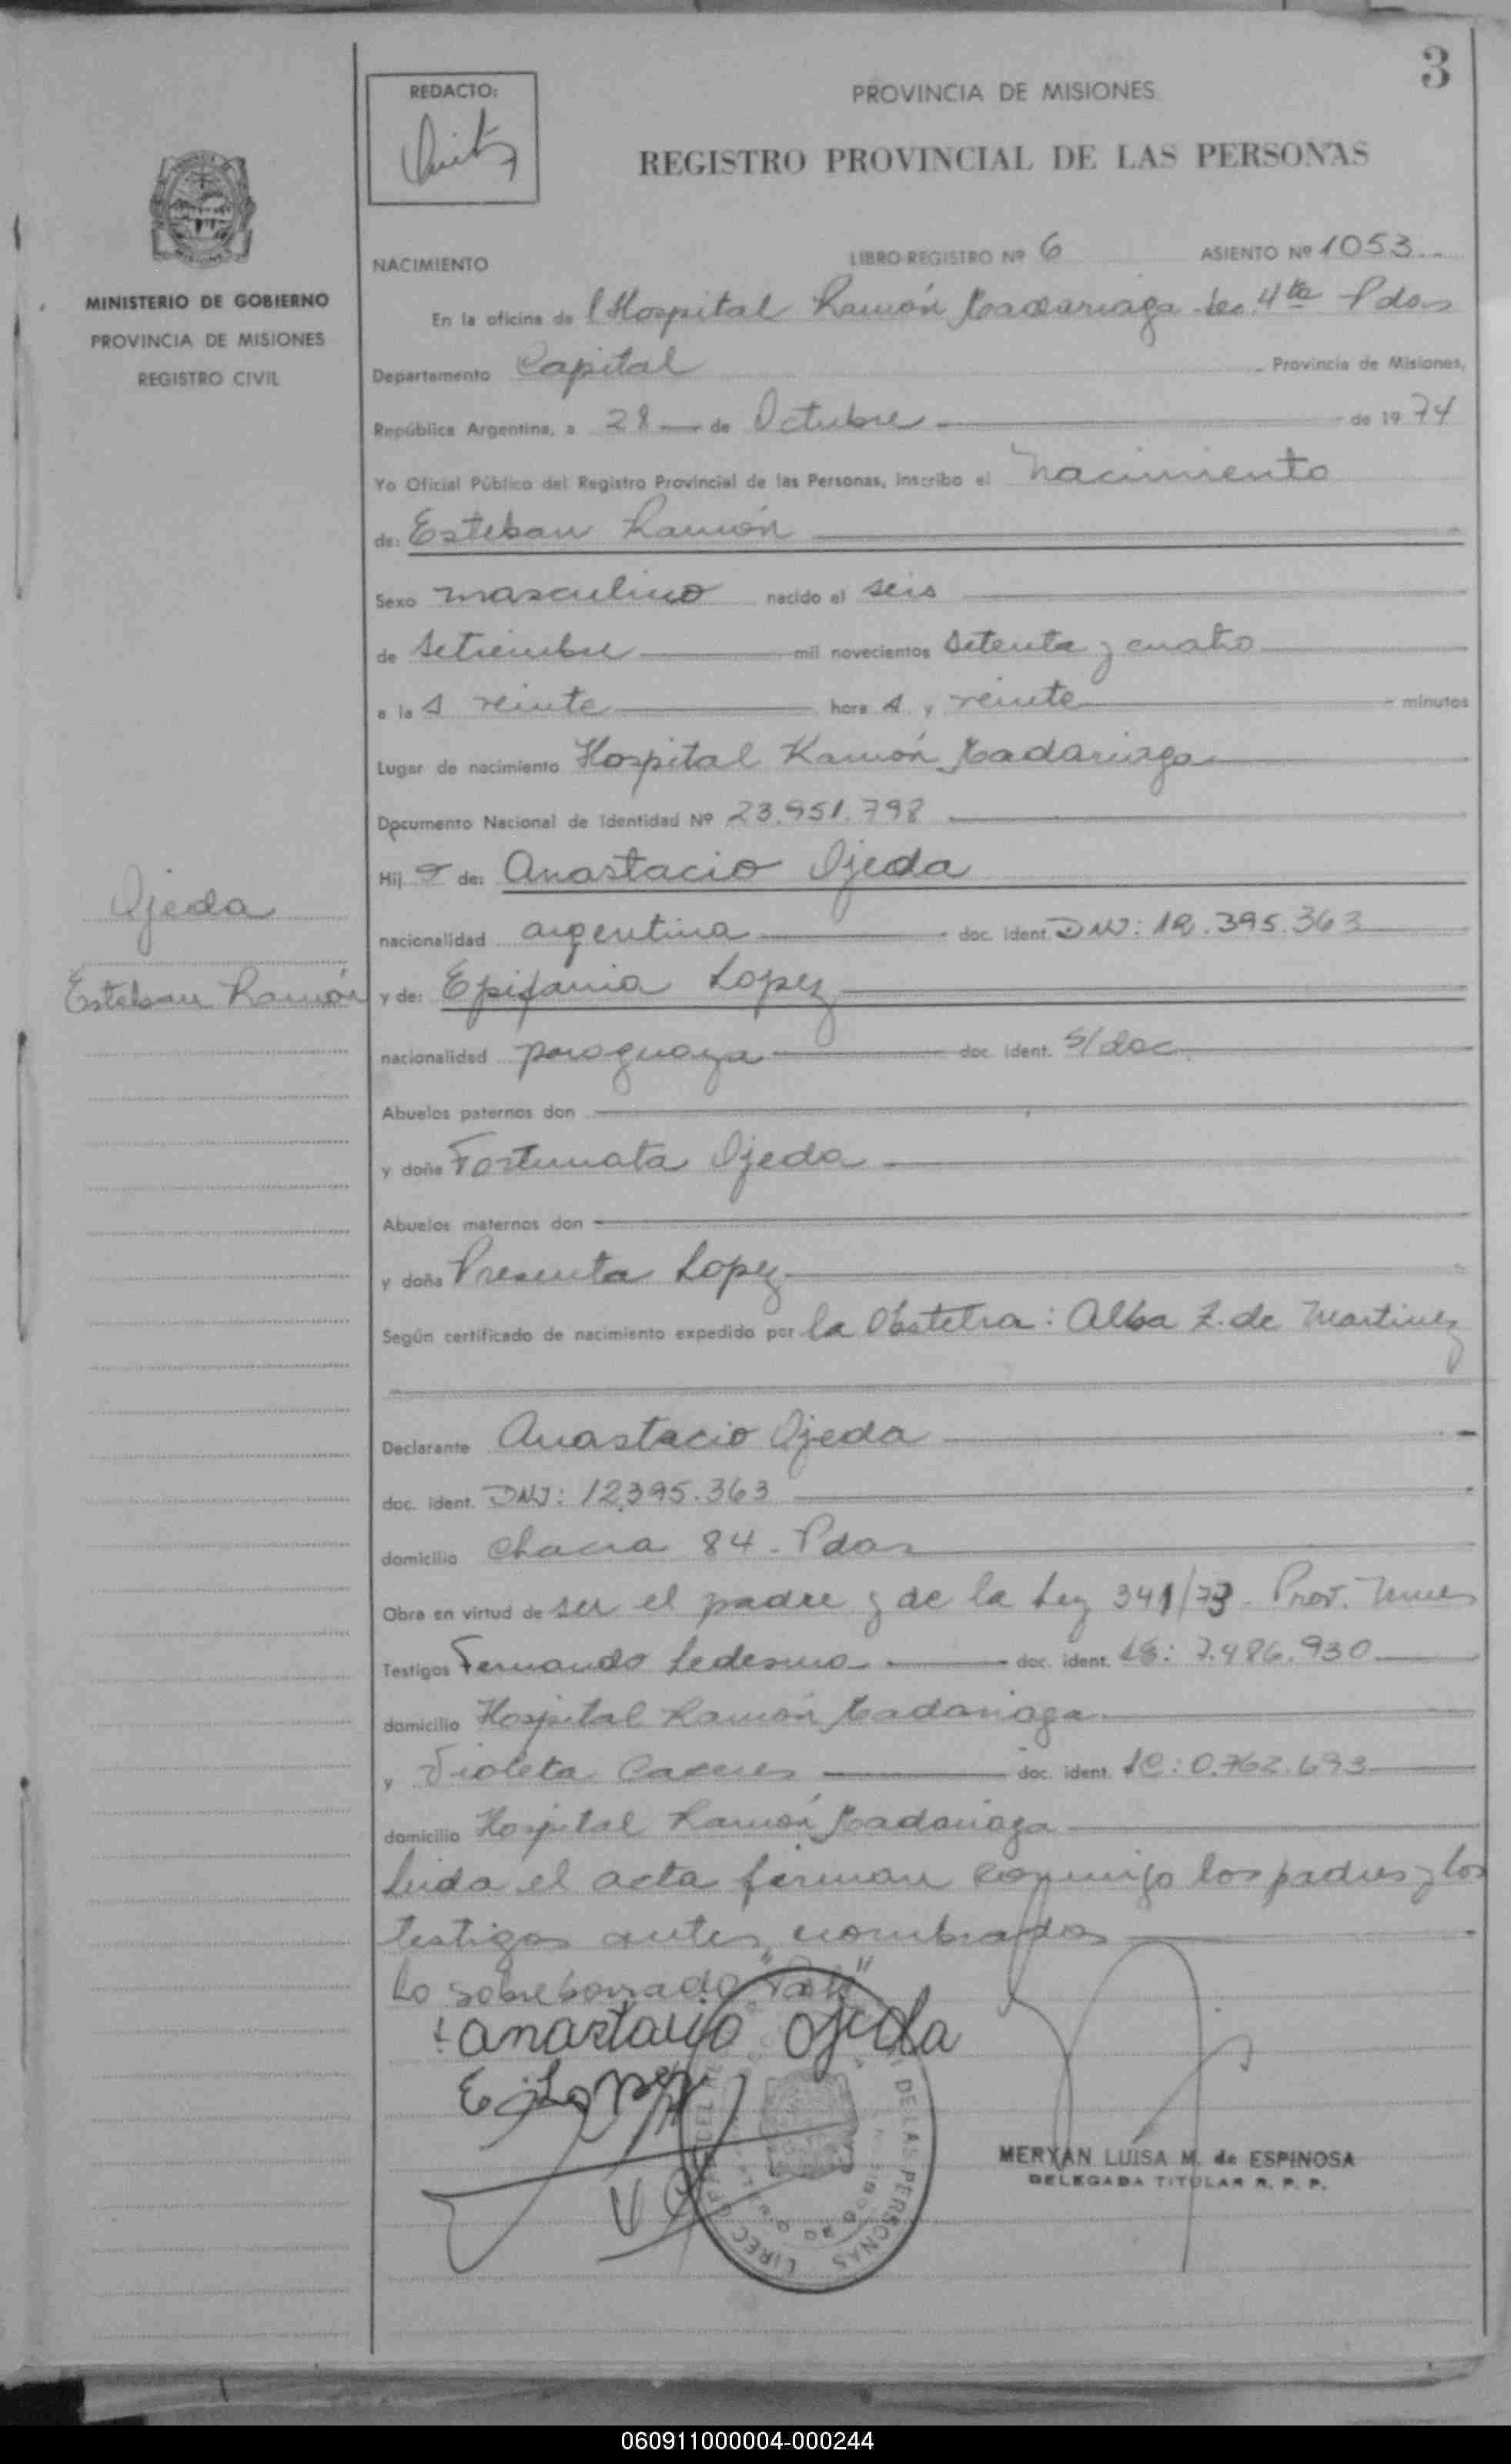 3
REDACTO:
PROVINCIA DE MISIONES
REGISTRO PROVINCIAL DE LAS PERSONAS
MINISTERIO DE GOBIERNO
PROVINCIA DE MISIONES
REGISTRO CIVIL
NACIMIENTO LIBRO REGISTRO Nº 6 ASIENTO Nº 1053
En la oficina del Hospital Ramón Madariaga 4ta Pdas
Departamento Capital Provincia de Misiones,
República Argentina, a 28 de Octubre de 1974
Yo Oficial Público del Registro Provincial de las Personas, inscribo el nacimiento
de: Esteban Ramón
Sexo masculino nacido el seis
de setiembre mil novecientos setenta y cuatro
a las veinte horas y veinte minutos
Lugar de nacimiento Hospital Ramón Madariaga
Documento Nacional de Identidad Nº 23.951.798
Hijo de: Anastacio Ojeda
nacionalidad argentina doc. ident. DNI: 12.395.363
Ojeda
Esteban Ramón
y de: Epifania Lopez
nacionalidad paraguaya doc. ident. s/doc.
Abuelos paternos don
y doña Fortunata Ojeda
Abuelos maternos don
y doña Presenta Lopez
Según certificado de nacimiento expedido por la Obstetra: Alba Z. de Martinez
Declarante Anastacio Ojeda
doc. ident. DNI: 12.395.363
domicilio Chacra 84 - Pdas
Obra en virtud de ser el padre y de la Ley 341/73 - Prov. Mnes
Testigos Fernando Ledesma doc. ident. LE: 7.486.930
domicilio Hospital Ramón Madariaga
y Violeta Caceres doc. ident. LC: 0.762.693
domicilio Hospital Ramón Madariaga
Leida el acta firman conmigo los padres y los
testigos antes nombrados
Lo sobreborrado
anastacio ojeda
E. Lopez
DE LAS PERSONAS
MERYAN LUISA M. de ESPINOSA
DELEGADA TITULAR R. P. P.
060911000004-000244